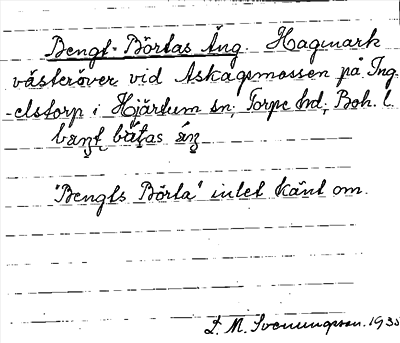 Bengt-Börtas Äng. Hagmark
västeröver vid Askagsmossen på Ing
-elstorp i Hjärtum sn; Torpe hd; Boh. l
baŋt bätas äŋ
"Bengts Börta" intet känt om.
L. M. Svenungsson. 1935